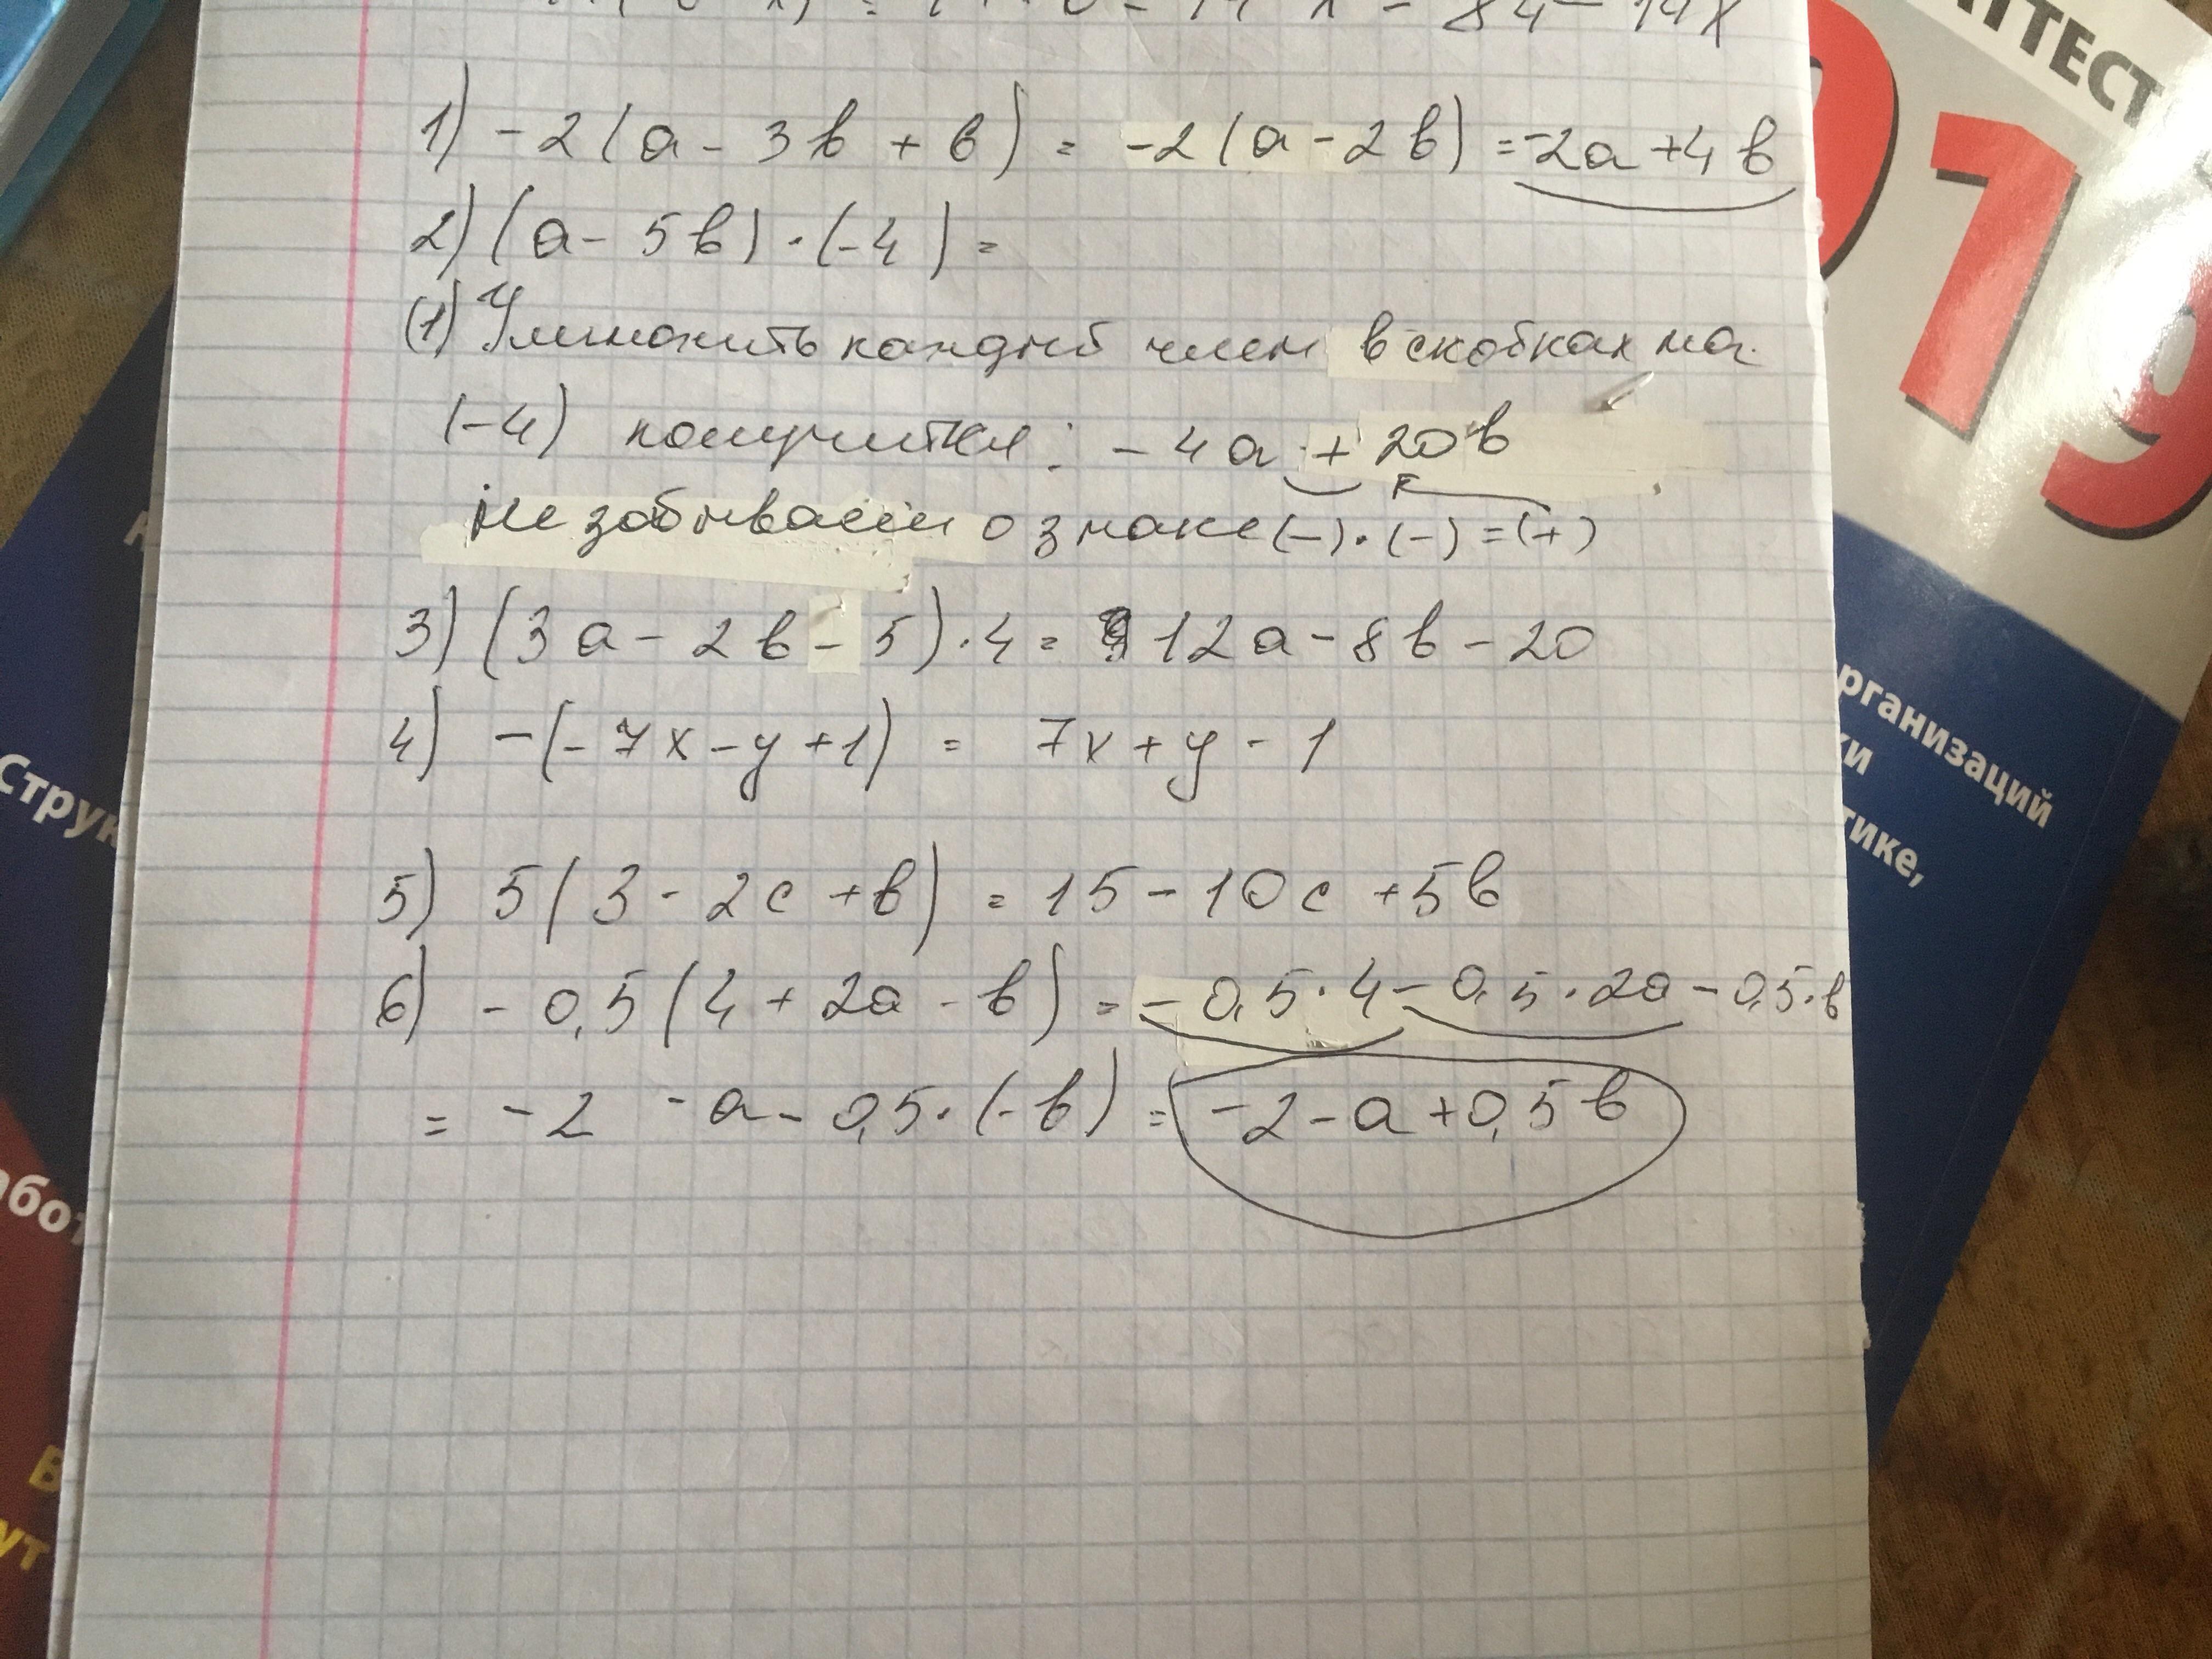 = 84 - 14x
1) -2(a - 3b + b) = -2(a - 2b) = -2a + 4b
2) (a - 5b) · (-4) =
(1) Умножить каждый член в скобках на
(-4) получится: -4a + 20b
Не забываем о знаке (-) · (-) = (+)
3) (3a - 2b - 5) · 4 = 12a - 8b - 20
4) -(-7x - y + 1) = 7x + y - 1
5) 5(3 - 2c + b) = 15 - 10c + 5b
6) - 0,5(4 + 2a - b) = - 0,5 · 4 - 0,5 · 2a - 0,5 · b
= -2 - a - 0,5 · (-b) = -2 - a + 0,5b
019
рганизаций
ки
тике,
Струк